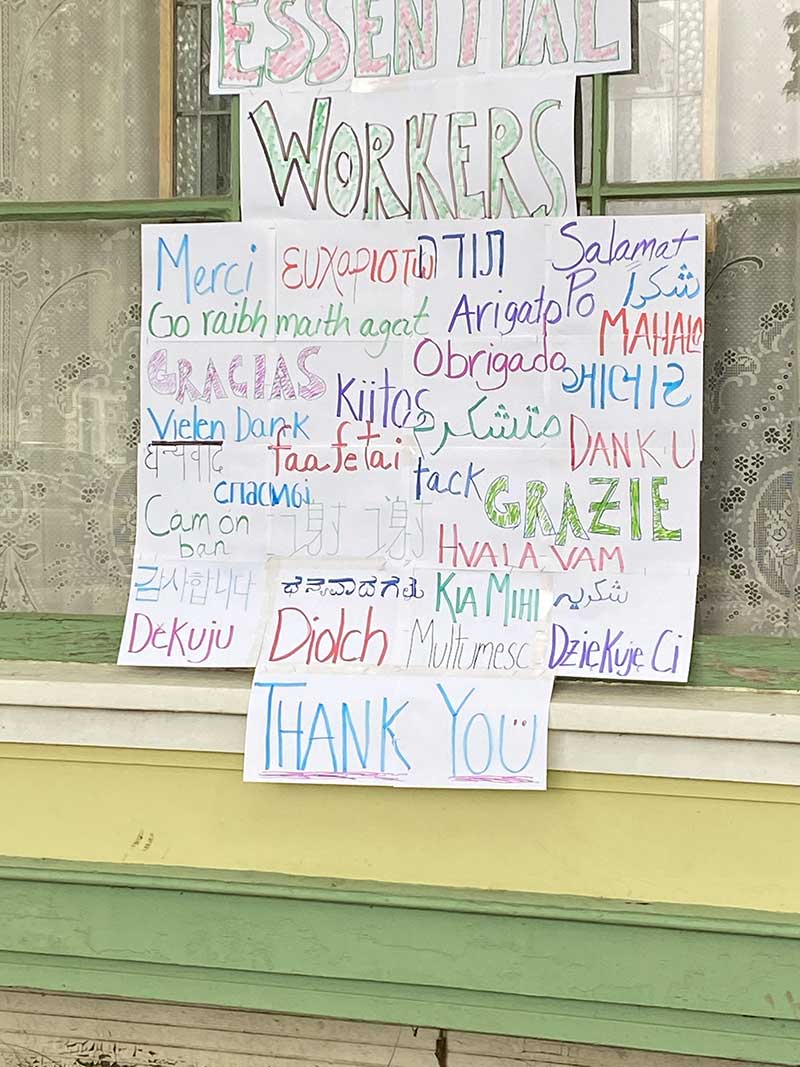 ESSENTIAL
WORKERS
Merci
ευχαριστω
תודה
Salamat
Po
شكرا
Go raibh maith agat
Arigato
MAHALO
GRACIAS
Obrigado
Kiitos
આભાર
Vielen Dank
متشكرم
DANK U
धन्यवाद
faafetai
tack
GRAZIE
спасибі
Cám ón
bạn
谢 谢
HVALA VAM
감사합니다
ಧನ್ಯವಾದಗಳು
KIA MIHI
شکریہ
Děkuju
Diolch
Multumesc
Dziękuję Ci
THANK YOU